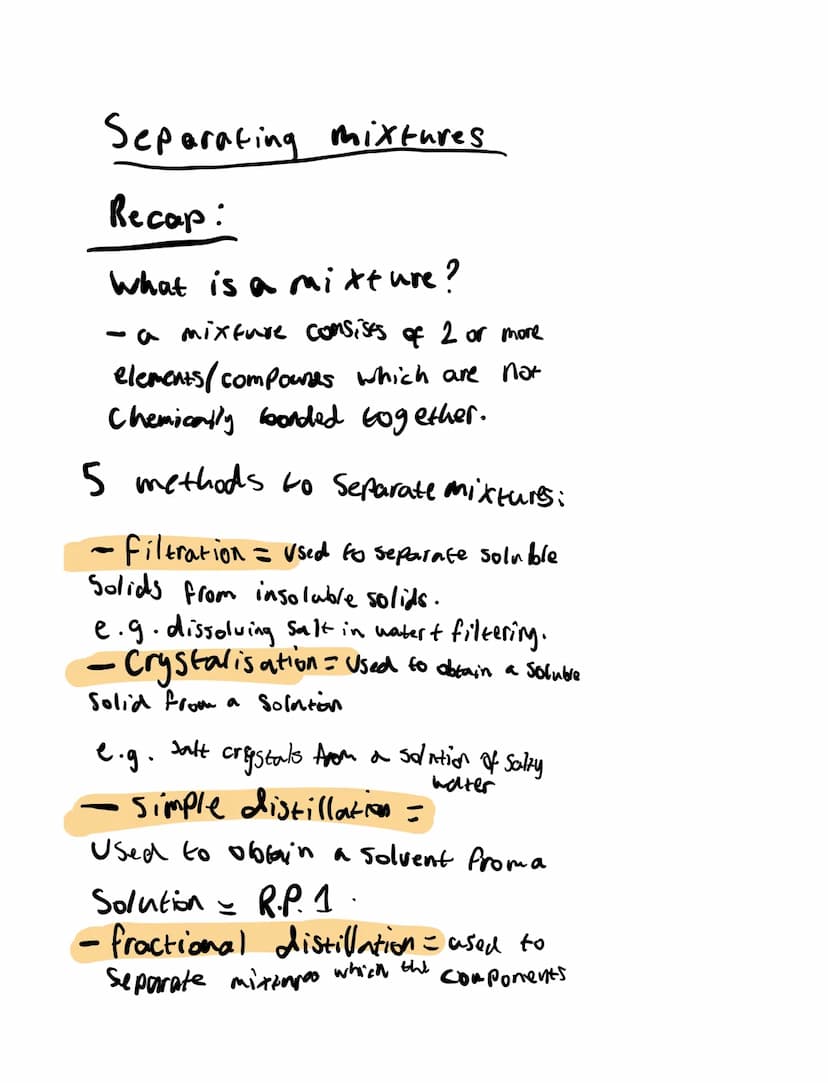 Separating mixtures
Recap:
What is a mixture?
- a mixture consists of 2 or more
elements/compounds which are not
Chemically bonded together.
5 methods to Separate mixtures:
- filtration = used to separate soluble
Solids from insoluble solids.
e.g. dissolving salt in water + filtering.
- Crystalisation = used to obtain a soluble
Solid from a solution
e.g. salt crystals from a solution of salty
water
- Simple distillation =
Used to obtain a solvent from a
Solution = R.P. 1.
- fractional distillation = used to
Separate mixtures which the components